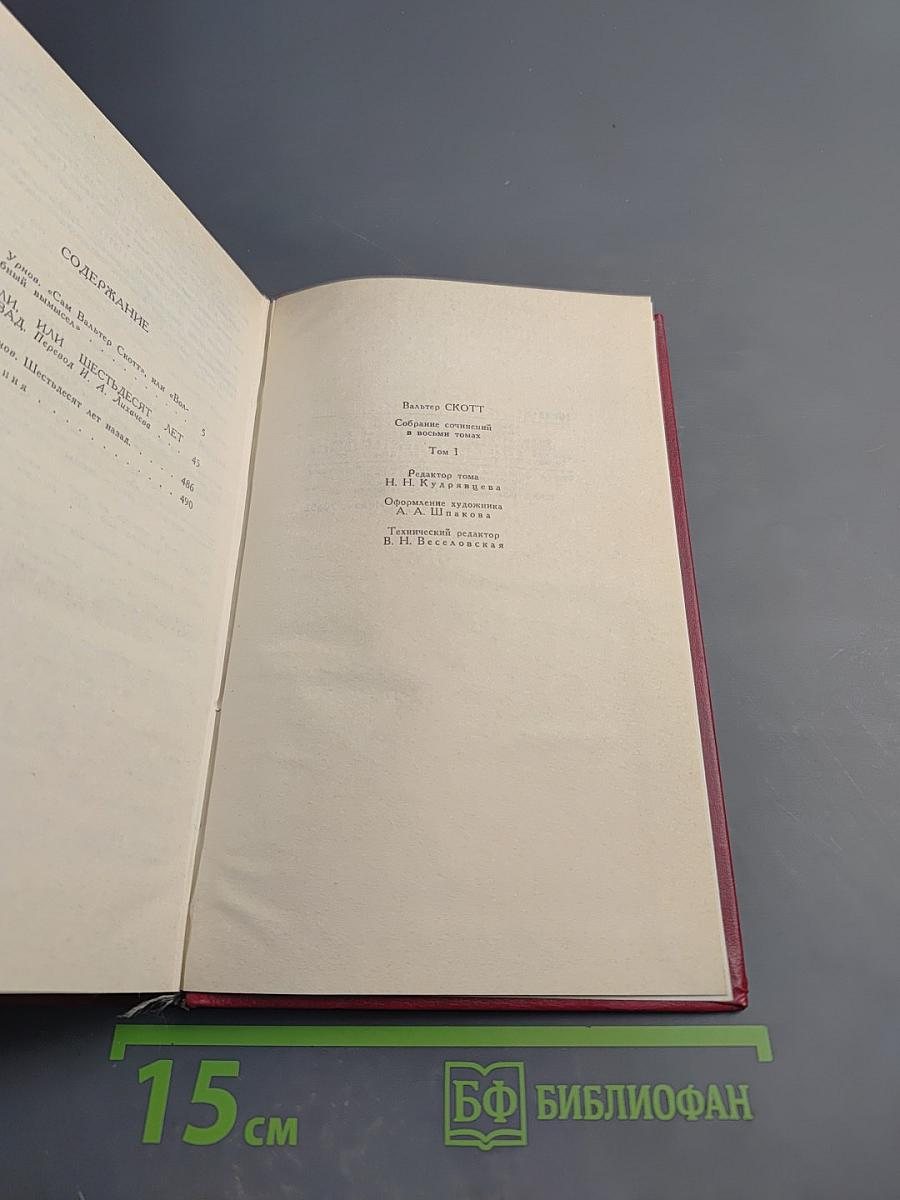 СОДЕРЖАНИЕ
Урнов. «Сам Вальтер Скотт», или «Вол-
бный вымысел» . . . . . . 5
ЛИ, ИЛИ ШЕСТЬДЕСЯТ ЛЕТ
ЗАД. Перевод И. А. Лихачева . . . 45
нов. Шестьдесят лет назад. . . . . 486
ния . . . . . . . 490
Вальтер СКОТТ
Собрание сочинений
в восьми томах
Том 1
Редактор тома
Н. Н. Кудрявцева
Оформление художника
А. А. Шпакова
Технический редактор
В. Н. Веселовская
15 см
БФ БИБЛИОФАН